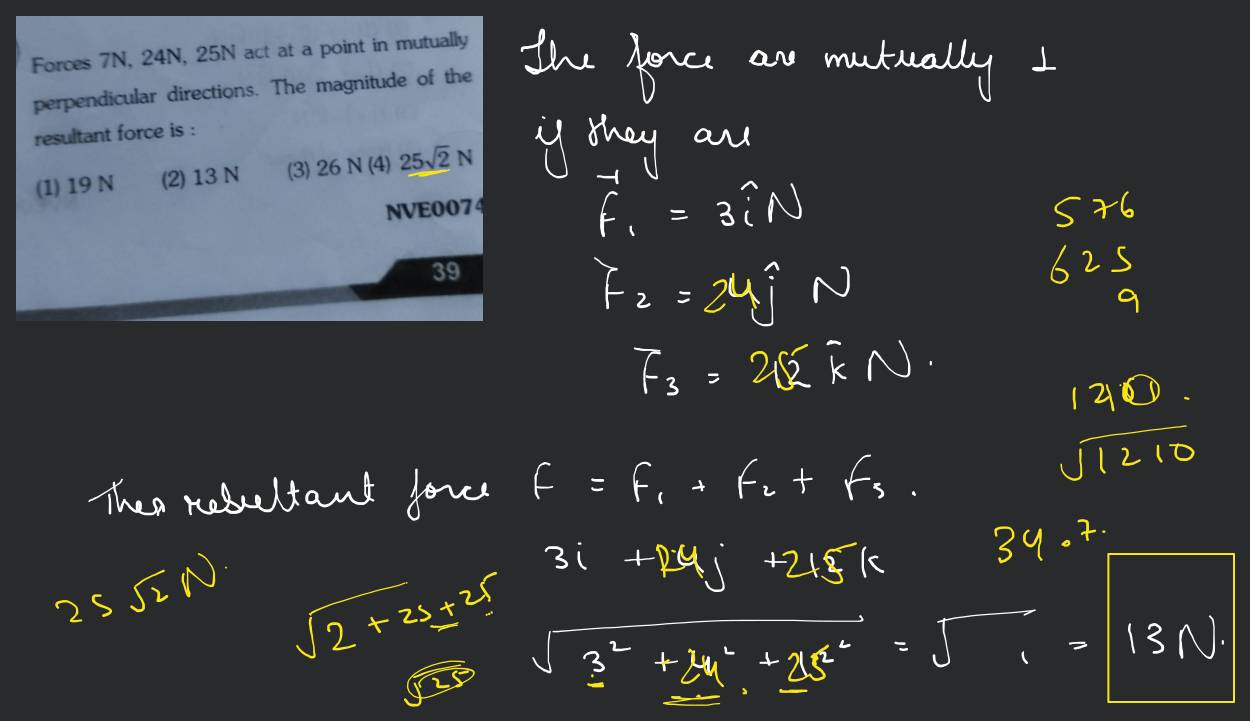 Forces 7N, 24N, 25N act at a point in mutually
perpendicular directions. The magnitude of the
resultant force is :
(1) 19 N (2) 13 N (3) 26 N (4) 25√2 N
NVE0074
39
The force are mutually ⊥
if they are
F₁ = 3î N
F₂ = 24ĵ N
F₃ = 25 k̂ N.
576
625
9
√1210
34.7.
Then resultant force F = F₁ + F₂ + F₃.
3i + 24j + 25k
√3² + 24² + 25² = √ = 13 N.
25√2 N.
√2 + 25 + 25
√25